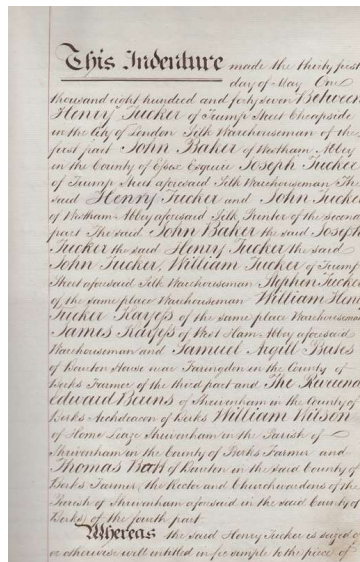 This Indenture made the thirty first
day of May One
thousand eight hundred and forty seven Between
Henry Tucker of Trump Street Cheapside
in the City of London Silk Warehouseman of the
first part John Baker of Westham Abbey
in the County of Essex Esquire Joseph Tucker
of Trump Street aforesaid Silk Warehouseman The
said Henry Tucker and John Tucker
of Westham Abbey aforesaid Silk Printer of the second
part The said John Baker the said Joseph
Tucker the said Henry Tucker the said
John Tucker, William Tucker of Trump
Street aforesaid Silk Warehouseman Stephen Tucker
of the same place Warehouseman William Henry
Tucker of the same place Warehouseman
James of West Ham Abbey aforesaid
Warehouseman and Samuel
of House near Farringdon in the County of
Berks Farmer of the third part and The Reverend
Edward of Shrivenham in the County of
Berks Archdeacon of Berks William Wilson
of Home Leaze Shrivenham in the Parish of
Shrivenham in the County of Berks Farmer and
Thomas of in the said County of
Berks Farmer, the Rector and Churchwardens of the
Parish of Shrivenham aforesaid in the said County of
Berks of the fourth part
Whereas the said Henry Tucker is seized of
or otherwise well intitled in fee simple to the piece of